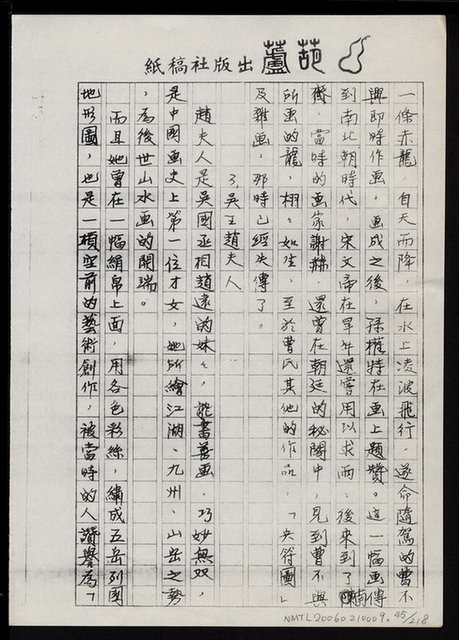 葫蘆出版社稿紙
一條赤龍 自天而降，在水上凌波飛行，遂命隨駕的曹不
興即時作画，画成之後，孫權特在画上題贊。這一幅画傳
到南北朝時代，宋文帝在旱年還嘗用以求雨，後來到了南
齊，當時的画家謝赫，還曾在朝廷的秘閣中，見到曹不興
所画的龍，栩々如生，至於曹氏其他的作品，「夫符圖」
及雜画，那時已經失傳了。
3.吳王趙夫人
趙夫人是吳國丞相趙達的妹々，能書善画，巧妙無双，
是中國画史上第一位才女，她所繪江湖、九州、山岳之勢
，為後世山水画的開端。
而且她曾在一幅絹帛上面，用各色彩絲，繡成五岳列國
地形圖，也是一樁空前的藝術創作，被當時的人讚譽為「
NMTL20060210009. 45/218